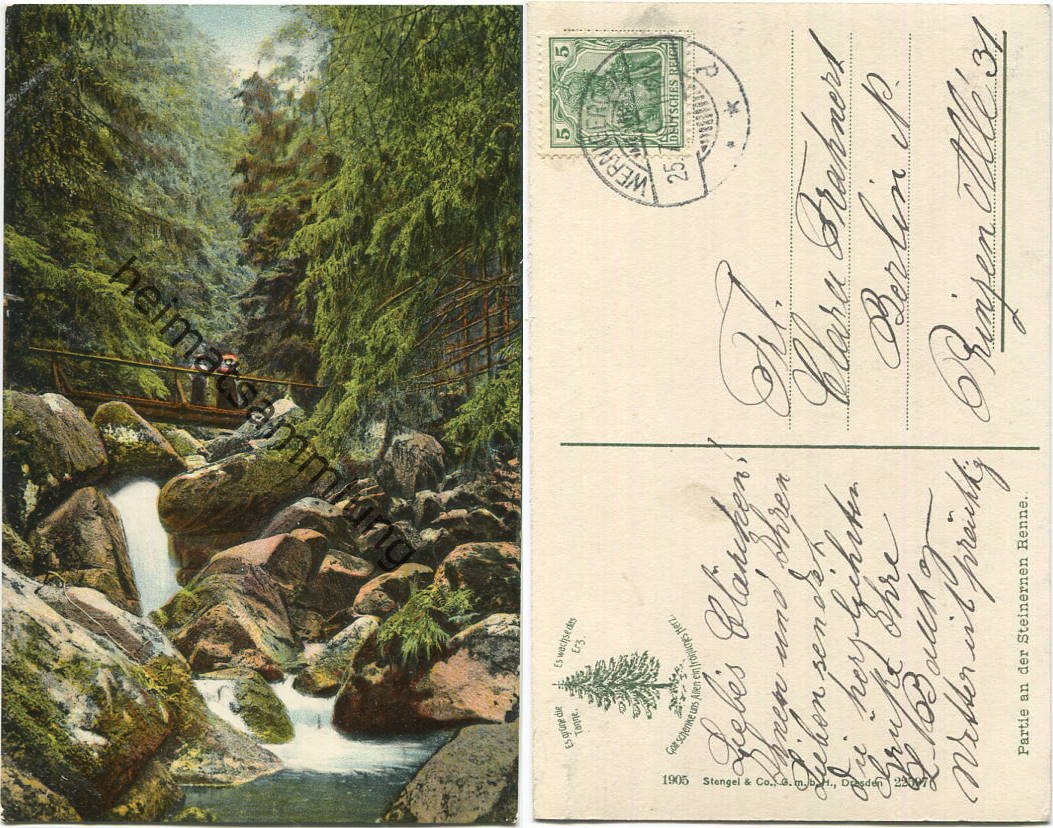 heimatsammlung.de
5 5
DEUTSCHES REICH
WERNIGERODE
25.
Frl.
Clara Frahnert
Berlin N.
Prinzen Alle 31
Liebes Clärchen!
Ihnen und Ihren
Lieben sendet
die herzlichsten
Grüße Ihre
Wetter ist prächtig
Es grüne die
Tanne,
Es wachse das
Erz,
Gott schenke uns Allen ein fröhliches Herz.
1905 Stengel & Co., G.m.b.H., Dresden 22597
Partie an der Steinernen Renne.